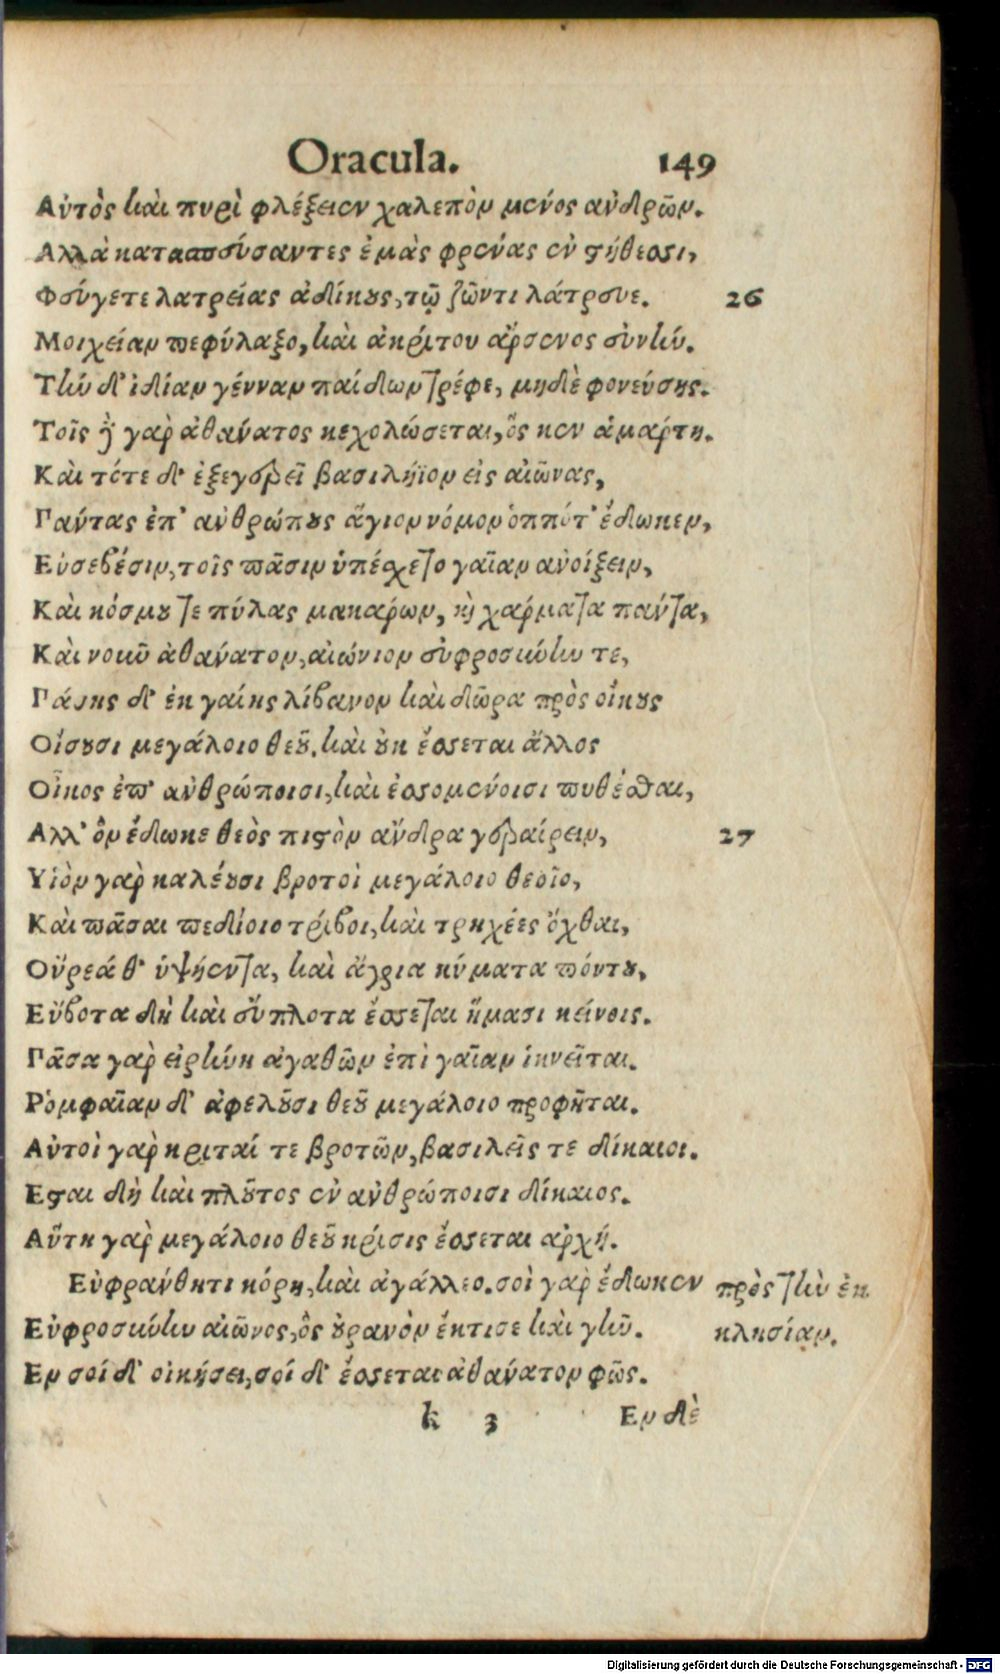 Oracula. 149
Αὐτὸς καὶ πυρὶ φλέξειεν χαλεπὸν μένος ἀνδρῶν.
Αλλὰ κατασπεύσαντες ἐμὰς φρένας ἐν στήθεσσι,
Φεύγετε λατρείας ἀδίκους, τῷ ζῶντι λάτρευε. 26
Μοιχείαν πεφύλαξο, καὶ ἀκρίτου ἄρσενος εὐνὴν.
Τὴν δ' ἰδίαν γένναν παίδων τρέφε, μηδὲ φονεύσης.
Τοῖς δὲ γὰρ ἀθάνατος κεχολώσεται, ὅς κεν ἁμάρτη.
Καὶ τότε δ' ἐξεγερεῖ βασιλήϊον εἰς αἰῶνας,
Πάντας ἐπ' ἀνθρώπους ἅγιον νόμον ὁππότ' ἔδωκεν,
Εὐσεβέσιν, τοῖς πᾶσιν ὑπέσχετο γαῖαν ἀνοίξειν,
Καὶ κόσμου τε πύλας μακάρων, καὶ χάρματα πάντα,
Καὶ νοῦν ἀθάνατον, αἰώνιον εὐφροσύνην τε,
Πάσης δ' ἐκ γαίης λίβανον καὶ δῶρα πρὸς οἴκους
Οἴσουσι μεγάλοιο θεοῦ. καὶ οὐκ ἔσσεται ἄλλος
Οἶκος ἐπ' ἀνθρώποισι, καὶ ἐσσομένοισι πυθέσθαι,
Αλλ' ὃν ἔδωκε θεὸς πιστὸν ἄνδρα γεραίρειν, 27
Υἱὸν γὰρ καλέουσι βροτοὶ μεγάλοιο θεοῖο,
Καὶ πᾶσαι πεδίοιο τρίβοι, καὶ τρηχέες ὄχθαι,
Οὔρεά θ' ὑψήεντα, καὶ ἄγρια κύματα πόντου,
Εὔβοτα δὴ καὶ εὔπλοτα ἔσσεται ἤμασι κείνοις.
Πᾶσα γὰρ εἰρήνη ἀγαθῶν ἐπὶ γαῖαν ἱκνεῖται.
Ρομφαῖαν δ' ἀφελοῦσι θεοῦ μεγάλοιο προφῆται.
Αὐτοὶ γὰρ κριταί τε βροτῶν, βασιλεῖς τε δίκαιοι.
Εσται δὴ καὶ πλοῦτος ἐν ἀνθρώποισι δίκαιος.
Αὕτη γὰρ μεγάλοιο θεοῦ κρίσις ἔσσεται ἀρχή.
Εὐφράνθητι κόρη, καὶ ἀγάλλεο. σοὶ γὰρ ἔδωκεν πρὸς τὴν ἐκ
Εὐφροσύνην αἰῶνος, ὃς οὐρανὸν ἔκτισε καὶ γῆν. κλησίαν.
Εν σοί δ' οἰκήσει, σοί δ' ἔσσεται ἀθάνατον φῶς.
k 3 Εν δὲ
Digitalisierung gefördert durch die Deutsche Forschungsgemeinschaft - DFG